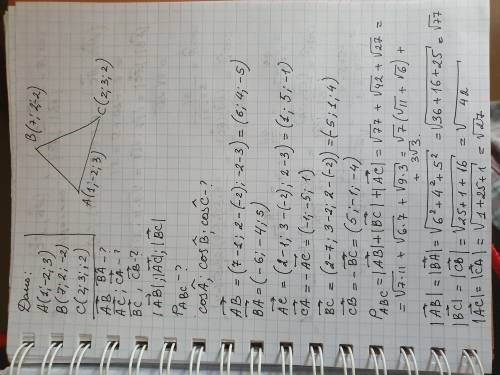 Дано:
A(1;-2;3)
B(7;2;-2)
C(2;3;2)
B(7;2;-2)
A(1;-2;3)
C(2;3;2)
AB; BA -?
AC; CA -?
BC; CB -?
|AB|; |AC|; |BC|
P_ABC -?
cosÂ; cosB̂; cosĈ -?
AB = (7-1; 2-(-2); -2-3) = (6; 4; -5)
BA = (-6; -4; 5)
AC = (2-1; 3-(-2); 2-3) = (1; 5; -1)
CA = -AC = (-1; -5; 1)
BC = (2-7; 3-2; 2-(-2)) = (-5; 1; 4)
CB = -BC = (5; -1; -4)
P_ABC = |AB|+|BC|+|AC| = √77 + √42 + √27 =
= √7·11 + √6·7 + √9·3 = √7(√11 + √6) +
+ 3√3.
|AB| = |BA| = √6²+4²+5² = √36+16+25 = √77
|BC| = |CB| = √25+1+16 = √42
|AC| = |CA| = √1+25+1 = √27